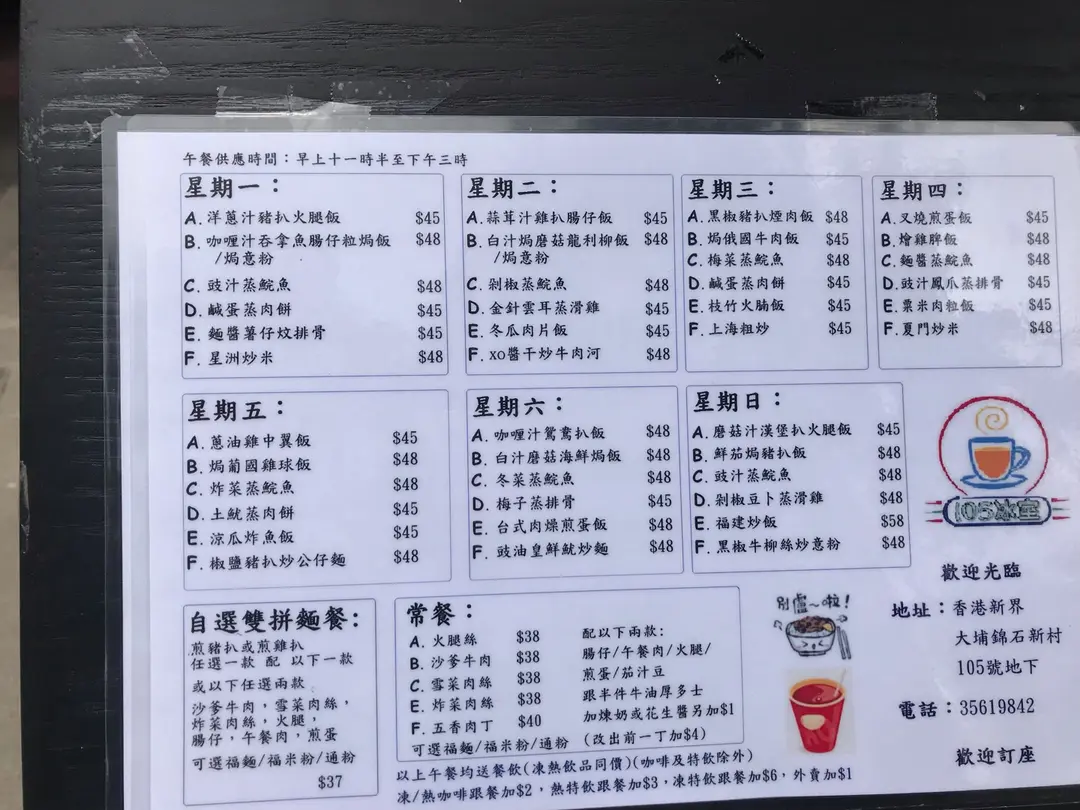 午餐供應時間：早上十一時半至下午三時
星期一：
A. 洋蔥汁豬扒火腿飯 $45
B. 咖喱汁吞拿魚腸仔粒焗飯 $48
/焗意粉
C. 豉汁蒸鯇魚 $48
D. 鹹蛋蒸肉餅 $45
E. 麵醬薯仔炆排骨 $45
F. 星洲炒米 $48
星期二：
A. 蒜茸汁雞扒腸仔飯 $45
B. 白汁焗磨菇龍利柳飯 $48
/焗意粉
C. 剁椒蒸鯇魚 $48
D. 金針雲耳蒸滑雞 $45
E. 冬瓜肉片飯 $45
F. XO醬干炒牛肉河 $48
星期三：
A. 黑椒豬扒煙肉飯 $48
B. 焗俄國牛肉飯 $45
C. 梅菜蒸鯇魚 $48
D. 鹹蛋蒸肉餅 $45
E. 枝竹火腩飯 $45
F. 上海粗炒 $45
星期四：
A. 叉燒煎蛋飯 $45
B. 燴雞脾飯 $48
C. 麵醬蒸鯇魚 $48
D. 豉汁鳳爪蒸排骨 $45
E. 粟米肉粒飯 $45
F. 夏門炒米 $48
星期五：
A. 蔥油雞中翼飯 $45
B. 焗葡國雞球飯 $48
C. 炸菜蒸鯇魚 $48
D. 土魷蒸肉餅 $45
E. 涼瓜炸魚飯 $45
F. 椒鹽豬扒炒公仔麵 $48
星期六：
A. 咖喱汁鴛鴦扒飯 $48
B. 白汁磨菇海鮮焗飯 $48
C. 冬菜蒸鯇魚 $48
D. 梅子蒸排骨 $45
E. 台式肉燥煎蛋飯 $48
F. 豉油皇鮮魷炒麵 $48
星期日：
A. 磨菇汁漢堡扒火腿飯 $45
B. 鮮茄焗豬扒飯 $48
C. 豉汁蒸鯇魚 $48
D. 剁椒豆卜蒸滑雞 $48
E. 福建炒飯 $58
F. 黑椒牛柳絲炒意粉 $48
105冰室
歡迎光臨
地址：香港新界
大埔錦石新村
105號地下
電話：35619842
歡迎訂座
自選雙拼麵餐：
煎豬扒或煎雞扒
任選一款 配 以下一款
或以下任選兩款
沙爹牛肉，雪菜肉絲，
炸菜肉絲，火腿，
腸仔，午餐肉，煎蛋
可選福麵/福米粉/通粉
$37
常餐：
A. 火腿絲 $38
B. 沙爹牛肉 $38
C. 雪菜肉絲 $38
E. 炸菜肉絲 $38
F. 五香肉丁 $40
可選福麵/福米粉/通粉
配以下兩款:
腸仔/午餐肉/火腿/
煎蛋/茄汁豆
跟半件牛油厚多士
加煉奶或花生醬另加$1
(改出前一丁加$4)
別盧~啦!
以上午餐均送餐飲(凍熱飲品同價)(咖啡及特飲除外)
凍/熱咖啡跟餐加$2，熱特飲跟餐加$3，凍特飲跟餐加$6，外賣加$1